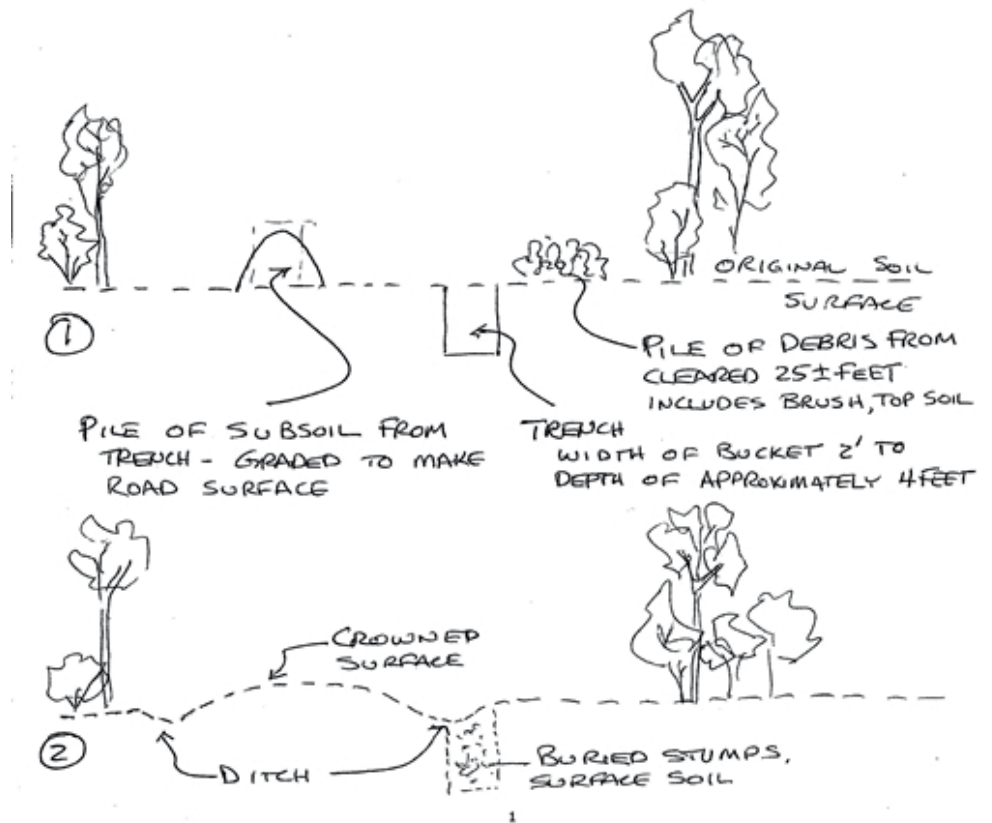 ORIGINAL SOIL
SURFACE
1
PILE OF DEBRIS FROM
CLEARED 25± FEET
INCLUDES BRUSH, TOP SOIL
PILE OF SUBSOIL FROM
TRENCH - GRADED TO MAKE
ROAD SURFACE
TRENCH
WIDTH OF BUCKET 2' TO
DEPTH OF APPROXIMATELY 4 FEET
CROWNED
SURFACE
2
DITCH
BURIED STUMPS,
SURFACE SOIL
1